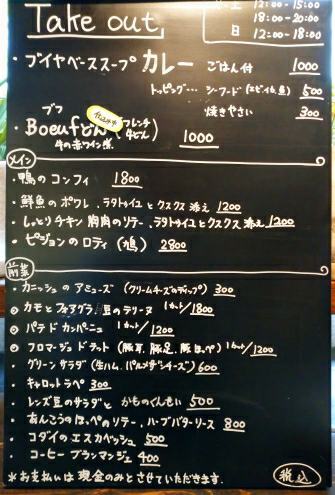 Take out
土 12:00-15:00
18:00-20:00
日 12:00-18:00
・ブイヤベーススープ カレー ごはん付 1000
トッピング… シーフード(エビ、イカ、魚) 500
焼きやさい 300
ブフ
・Boeufどん (フレンチ牛どん) 1000
牛の赤ワイン煮
メイン
・鴨のコンフィ 1800
・鮮魚のポワレ、ラタトゥイユとクスクス添え 1200
・しっとりチキン胸肉のソテー、ラタトゥイユとクスクス添え 1200
・ピジョンのロティ (鳩) 2800
前菜
・カニッシュのアミューズ (クリームチーズのディップ) 300
◦ カモとフォアグラ、豆のテリーヌ 1カット/1800
◦ パテドカンパーニュ 1カット/1200
◦ フロマージュドテット (豚耳、豚足、豚ほっぺ) 1カット/1200
・グリーンサラダ (生ハム、パルメザンチーズ) 600
・キャロットラペ 300
・レンズ豆のサラダと かものくんせい 500
・あんこうのほっぺのソテー、ハーブバターソース 800
・コダイのエスカベッシュ 500
・コーヒーブランマンジェ 400
*お支払いは現金のみとさせていただきます.
税込